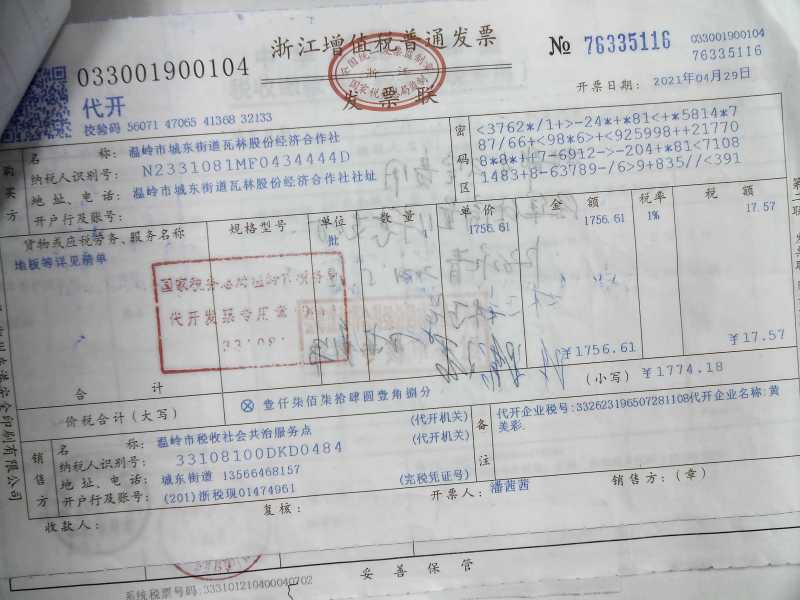 033001900104
浙江增值税普通发票
№ 76335116
033001900104
76335116
代开
发票联
开票日期: 2021年04月29日
校验码 56071 47065 41368 32133
购买方
名 称: 温岭市城东街道瓦林股份经济合作社
纳税人识别号: N2331081MF0434444D
地 址、电 话: 温岭市城东街道瓦林股份经济合作社社址
开户行及账号:
密码区
<3762*/1+>-24*+*81<+*5814*7
87/66+<98*6>+<925998++21770
8*8*++7-6912->-204+*81<7108
1483+8-63789-/6>9+835//<391
货物或应税劳务、服务名称 规格型号 单位 数 量 单 价 金 额 税率 税 额
地板等详见清单 批 1756.61 1756.61 1% 17.57
国家税务总局温岭市税务局
代开发票专用章
合 计 ¥1756.61 ¥17.57
价税合计(大写) ⊗ 壹仟柒佰柒拾肆圆壹角捌分 (小写) ¥1774.18
销售方
名 称: 温岭市税收社会共治服务点 (代开机关)
纳税人识别号: 33108100DKD0484 (代开机关)
地 址、电 话: 城东街道 13566468157
开户行及账号: (201)浙税现01474961 (完税凭证号)
备注
代开企业税号:332623196507281108代开企业名称:黄
美彩
收款人:
复核:
开票人: 潘茜茜
销售方:(章)
妥善保管
系统税票号码:333101210400040702